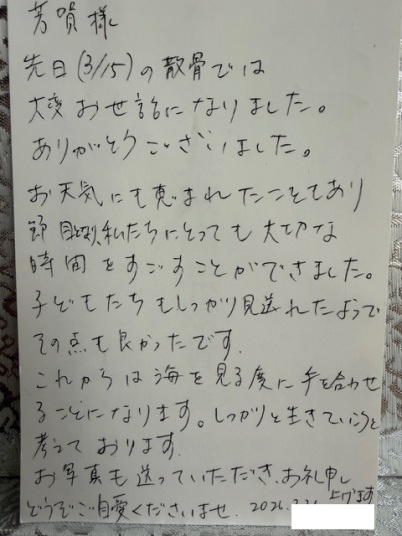 芳賀 様
先日(3/15)の散骨では
大変お世話になりました。
ありがとうございました。
お天気にも恵まれたこともあり
節目となり、私たちにとっても大切な
時間をすごすことができました。
子どもたちもしっかり見送れたようで
その点も良かったです.
これからは海を見る度に手を合わせ
ることになります。しっかりと生きていこうと
考えております.
お写真も送っていただき、お礼申し
上げます
どうぞご自愛くださいませ. 2026.3.